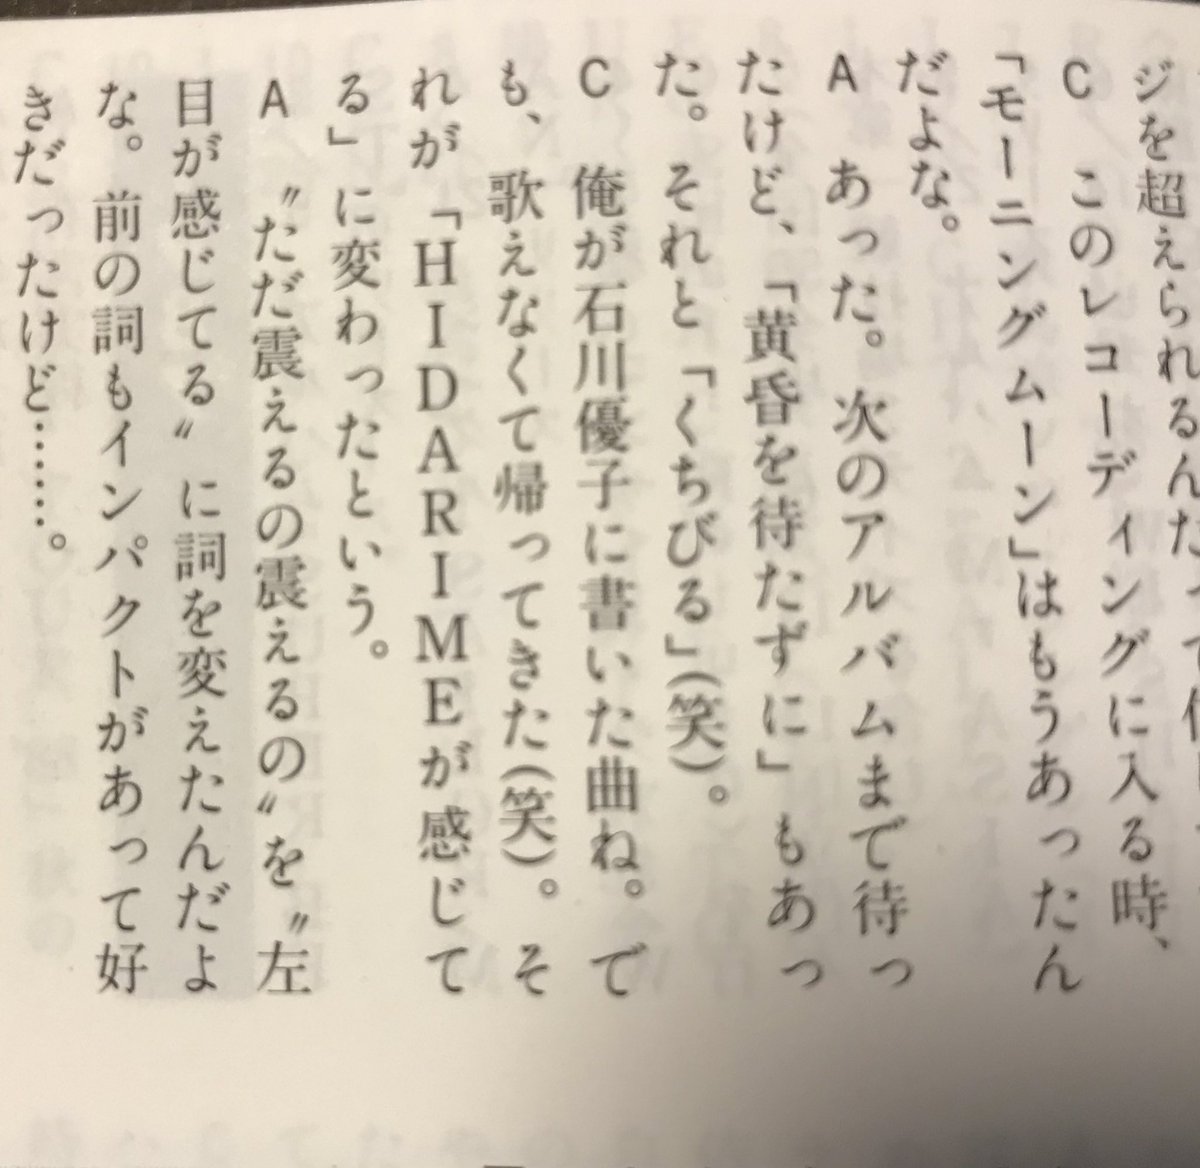 ジを超えられるんだって
C　このレコーディングに入る時、
「モーニングムーン」はもうあったん
だよな。
A　あった。次のアルバムまで待っ
たけど、「黄昏を待たずに」もあっ
た。それと「くちびる」(笑)。
C　俺が石川優子に書いた曲ね。で
も、歌えなくて帰ってきた(笑)。そ
れが「HIDARIMEが感じて
る」に変わったという。
A　〝ただ震えるの震えるの〟を〝左
目が感じてる〟に詞を変えたんだよ
な。前の詞もインパクトがあって好
きだったけど……。